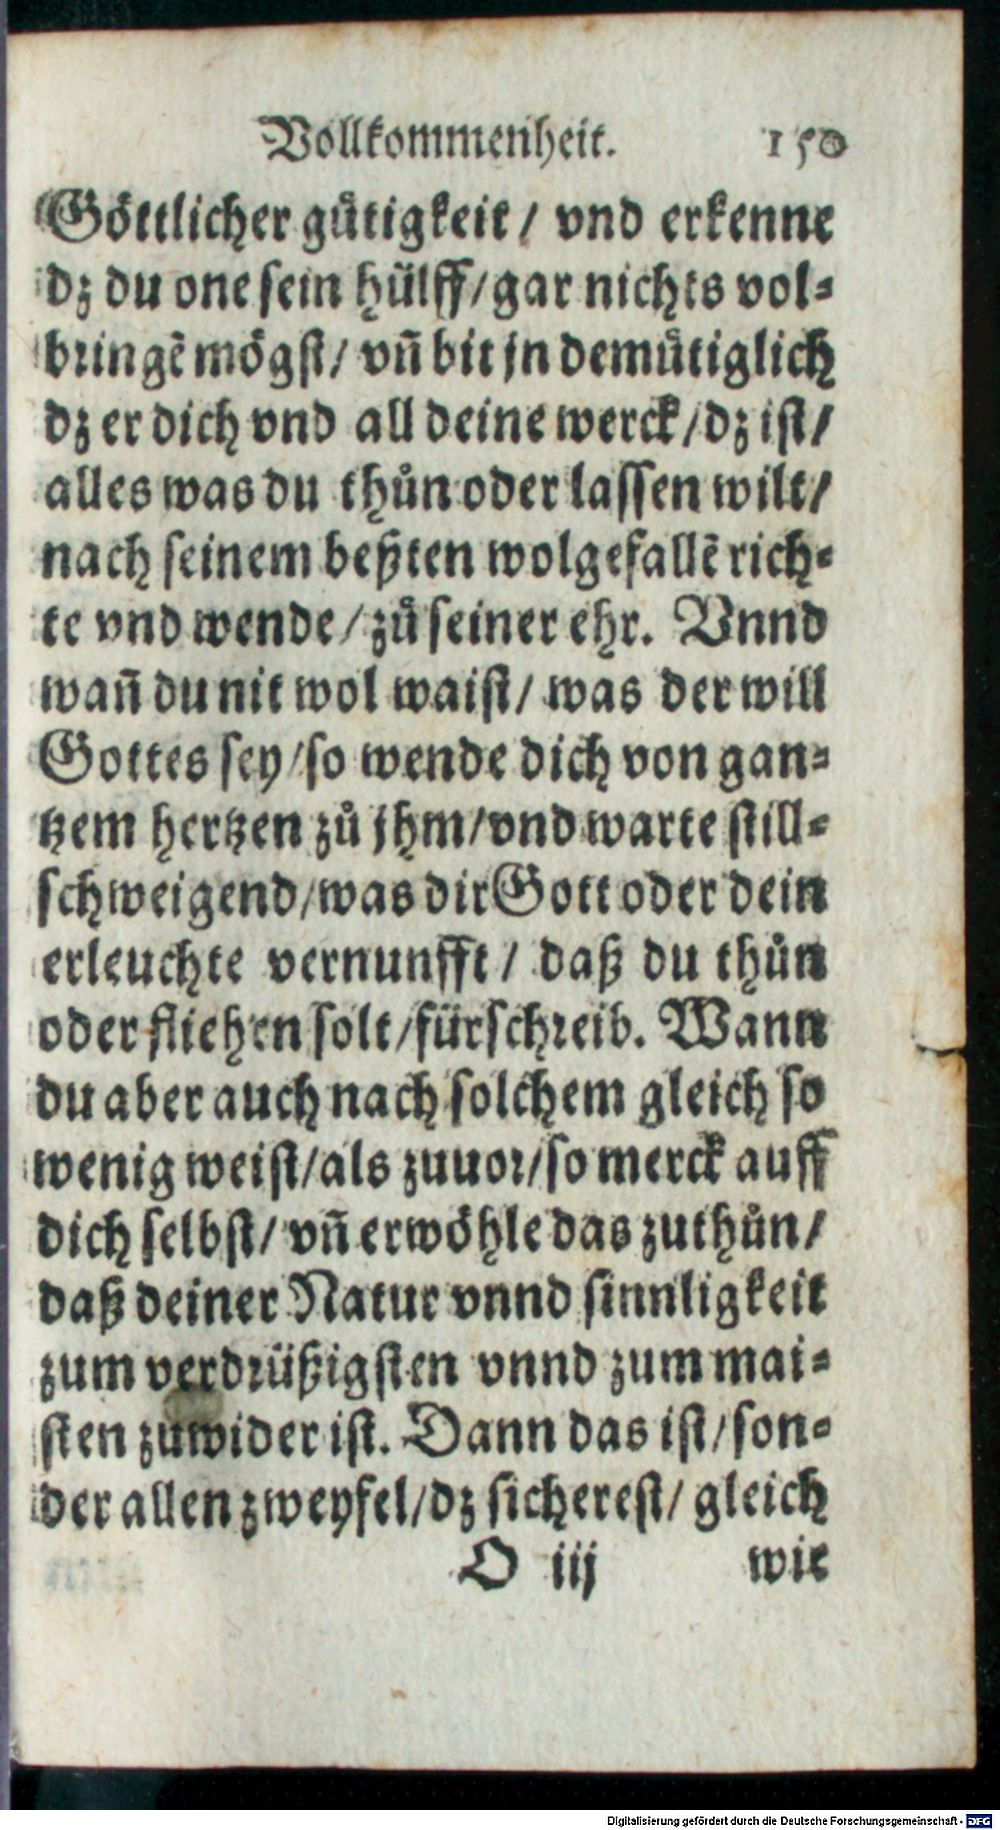 Vollkommenheit. 150
Göttlicher gůtigkeit / vnd erkenne
dz du one sein hülff / gar nichts vol-
bringẽ mögst / vñ bit jn demůtiglich
dz er dich vnd all deine werck / dz ist /
alles was du thůn oder lassen wilt /
nach seinem beßten wolgefallẽ rich-
te vnd wende / zů seiner ehr. Vnnd
wañ du nit wol waist / was der will
Gottes sey / so wende dich von gan-
tzem hertzen zů jhm / vnd warte still-
schweigend / was dir Gott oder dein
erleuchte vernunfft / daß du thůn
oder fliehen solt / fürschreib. Wann
du aber auch nach solchem gleich so
wenig weist / als zuuor / so merck auff
dich selbst / vñ erwöhle das zuthůn /
daß deiner Natur vnnd sinnligkeit
zum verdrüßigsten vnnd zum mai-
sten zuwider ist. Dann das ist / son-
der allen zweyfel / dz sicherest / gleich
O iij wie
Digitalisierung gefördert durch die Deutsche Forschungsgemeinschaft - DFG